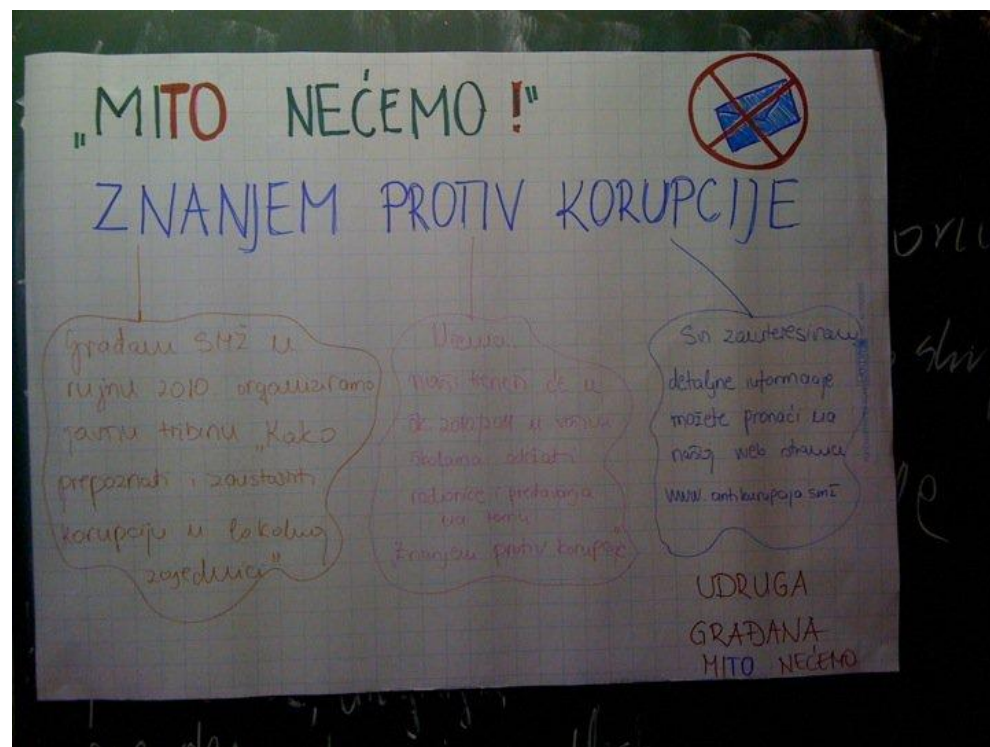 „MITO NEĆEMO!"
ZNANJEM PROTIV KORUPCIJE
Građani SMŽ u
rujnu 2010. organiziramo
javnu tribinu „Kako
prepoznati i zaustaviti
korupciju u lokalnoj
zajednici"
naši treneri će u
šk. 2010/2011 u vašim
školama održati
radionice i predavanja
na temu
Znanjem protiv korupcije
Svi zainteresirani
detaljne informacije
možete pronaći na
našoj web stranici
www.antikorupcija.smž
UDRUGA
GRAĐANA
MITO NEĆEMO